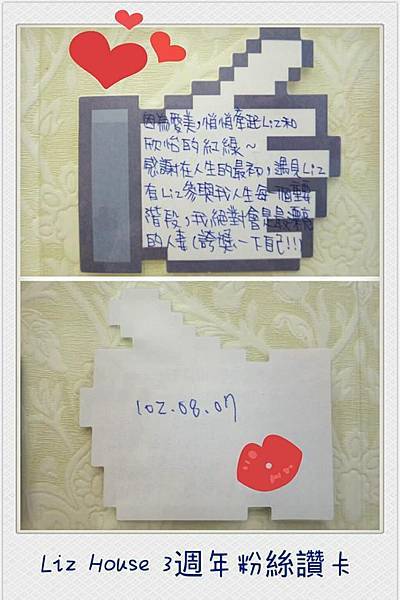 因為愛美,悄悄牽起Liz和
欣怡的紅線~
感謝在人生的最初,遇見Liz
有Liz參與我人生每一個轉
階段,我絕對會是最漂亮
的人妻(誇獎一下自己!!)
102.08.07
Liz House 3週年粉絲讚卡